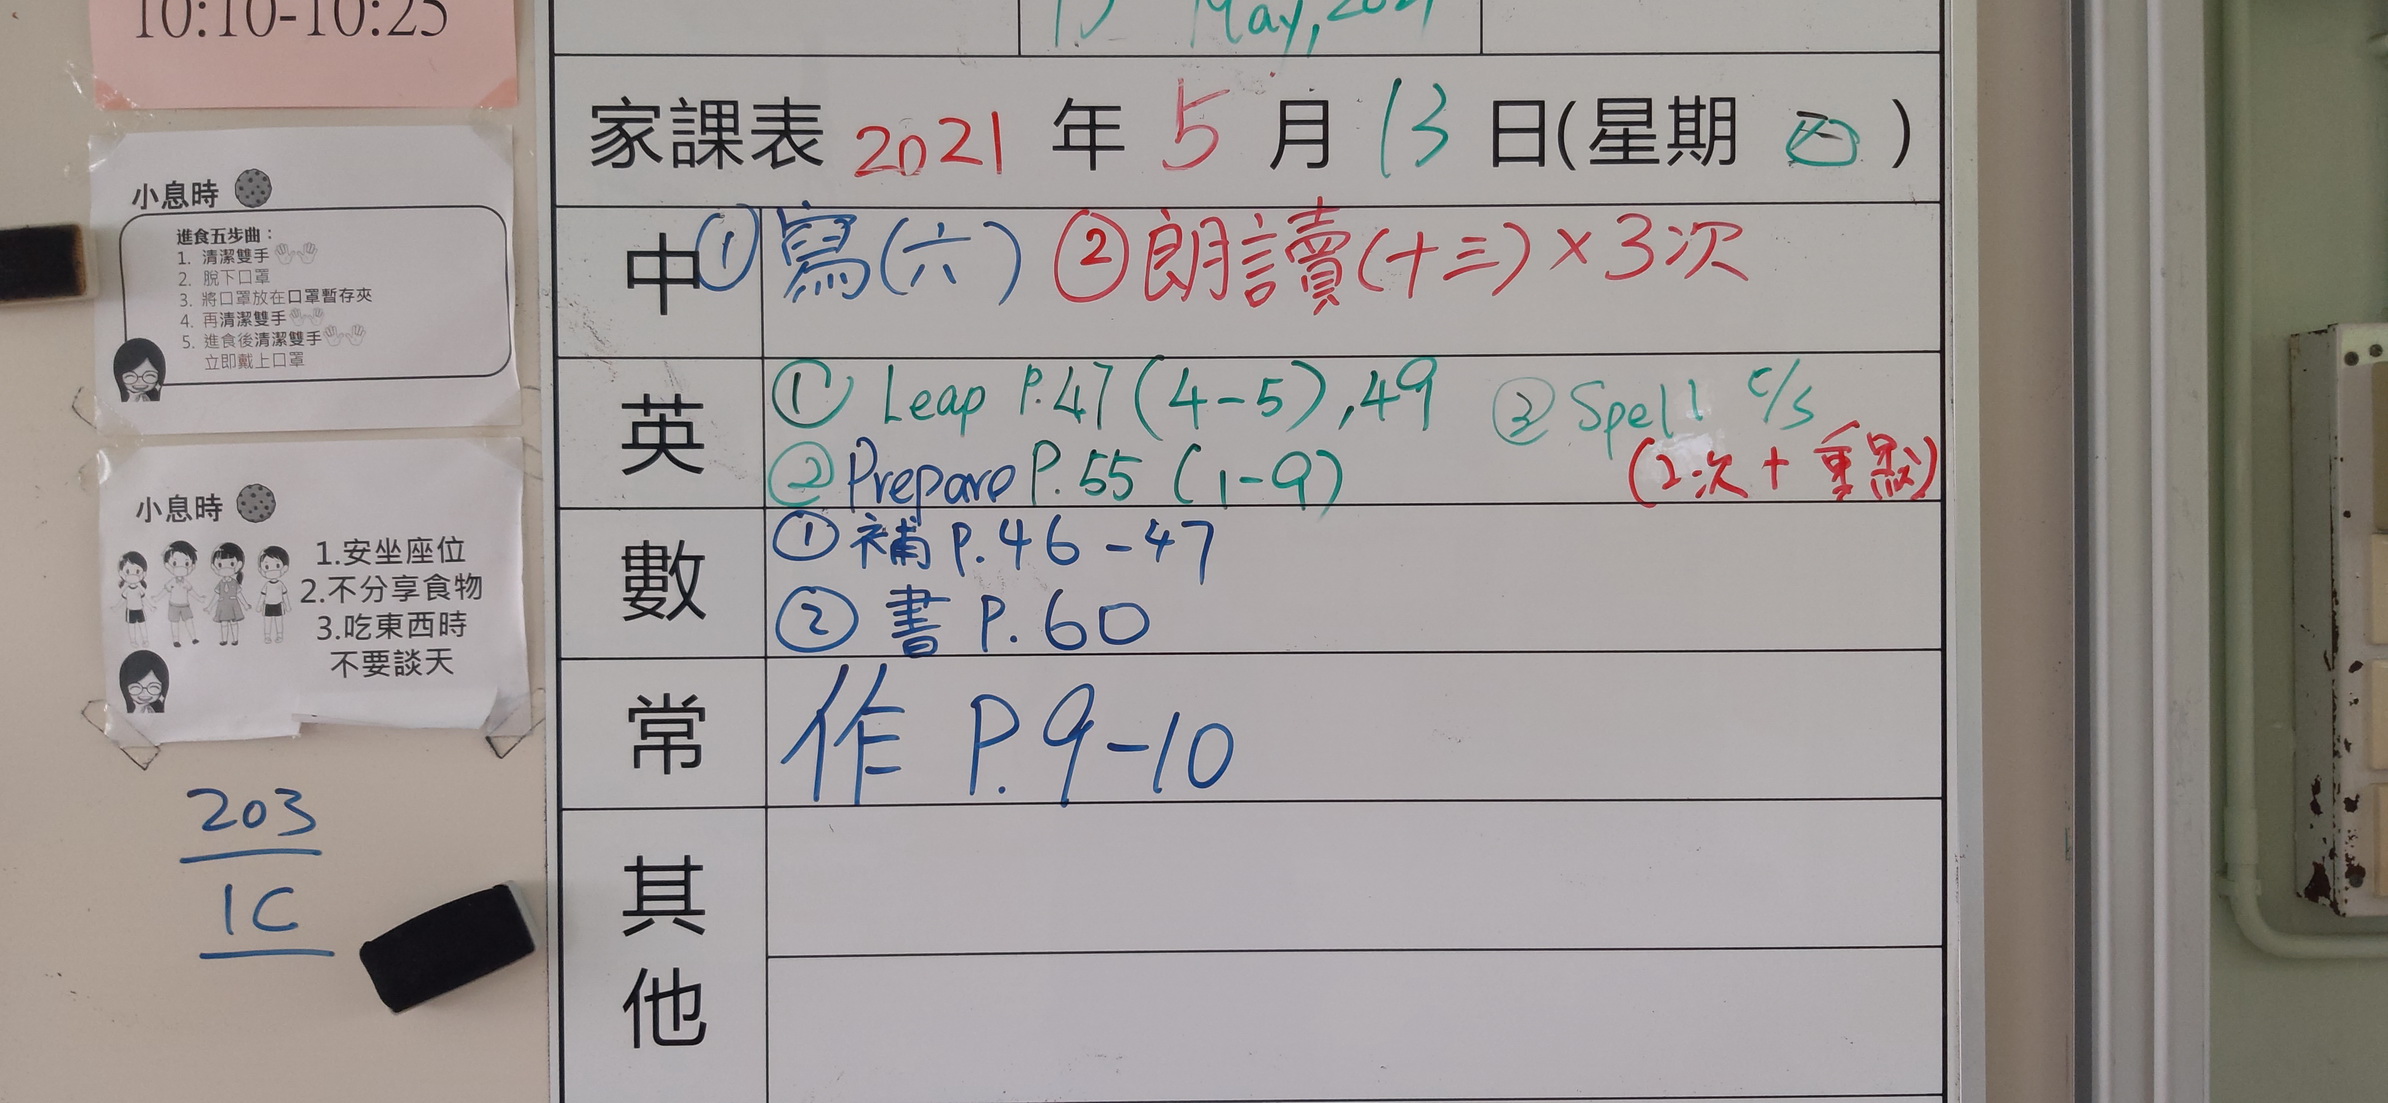 10:10-10:25
May, 2021
家課表 2021 年 5 月 13 日(星期 四)
小息時
進食五步曲：
1. 清潔雙手
2. 脫下口罩
3. 將口罩放在口罩暫存夾
4. 再清潔雙手
5. 進食後清潔雙手
立即戴上口罩
小息時
1.安坐座位
2.不分享食物
3.吃東西時
不要談天
203
1C
中 ① 寫(六) ② 朗讀(十三) × 3次
英
① Leap P.47 (4-5), 49 ③ Spell c/s
② Prepare P. 55 (1-9) (2次 + 重默)
數
① 補 P. 46 - 47
② 書 P. 60
常 作 P. 9-10
其他